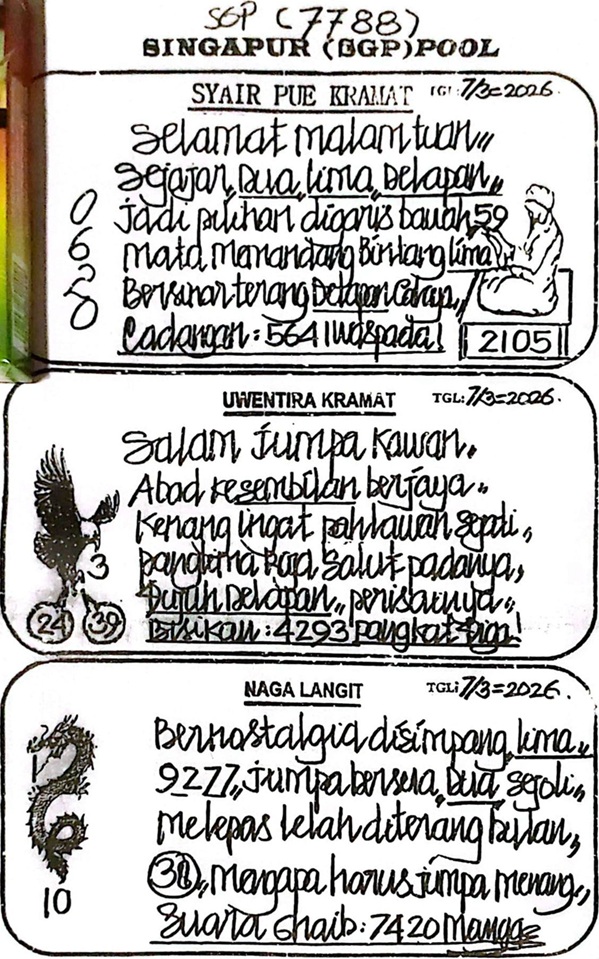 SGP (7788)
SINGAPUR (SGP) POOL
SYAIR PUE KRAMAT TGL: 7/3=2026
Selamat malam tuan,,
Sejajar,, Dua,, lima,, Delapan,,
Jadi pilihan digaris bawah 59
Mata memandang Bintang lima
Bersinar terang Delapan Cahaya,,
Cadangan: 5641 Waspada!
0
6
2105
UWENTIRA KRAMAT TGL: 7/3=2026.
Salam Jumpa Kawan.
Abad kesembilan berjaya,,
Kenang ingat pahlawan sejati,
panglima Raja Salut padanya,
Tujuh Delapan,, perisainya,,
Bisikan: 4293 pangkat tiga!
3
24 39
NAGA LANGIT TGL: 7/3=2026.
Bernostalgia disimpang lima,,
9277,, jumpa bersua,, Dua,, sejoli,,
Melepas lelah diterang bulan,
mengapa harus jumpa menang,,
Suara Ghaib: 7420 Mangga
10